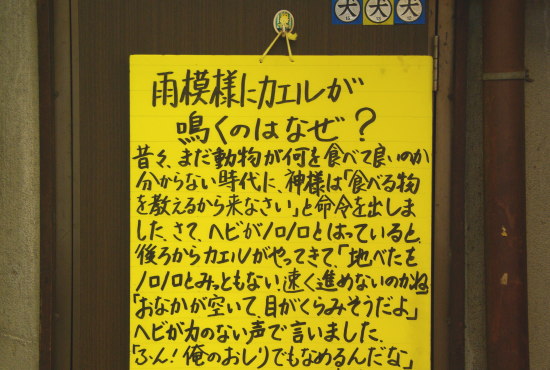 犬 犬 犬
雨模様にカエルが
鳴くのはなぜ？
昔々、まだ動物が何を食べて良いのか
分からない時代に、神様は「食べる物
を教えるから来なさい」と命令を出しま
した。さて、ヘビがノロノロとはっていると、
後ろからカエルがやってきて、「地べたを
ノロノロとみっともない、速く進めないのかね」
「おなかが空いて、目がくらみそうだよ」
ヘビが力のない声で言いました。
「ふん！俺のおしりでもなめるんだな」